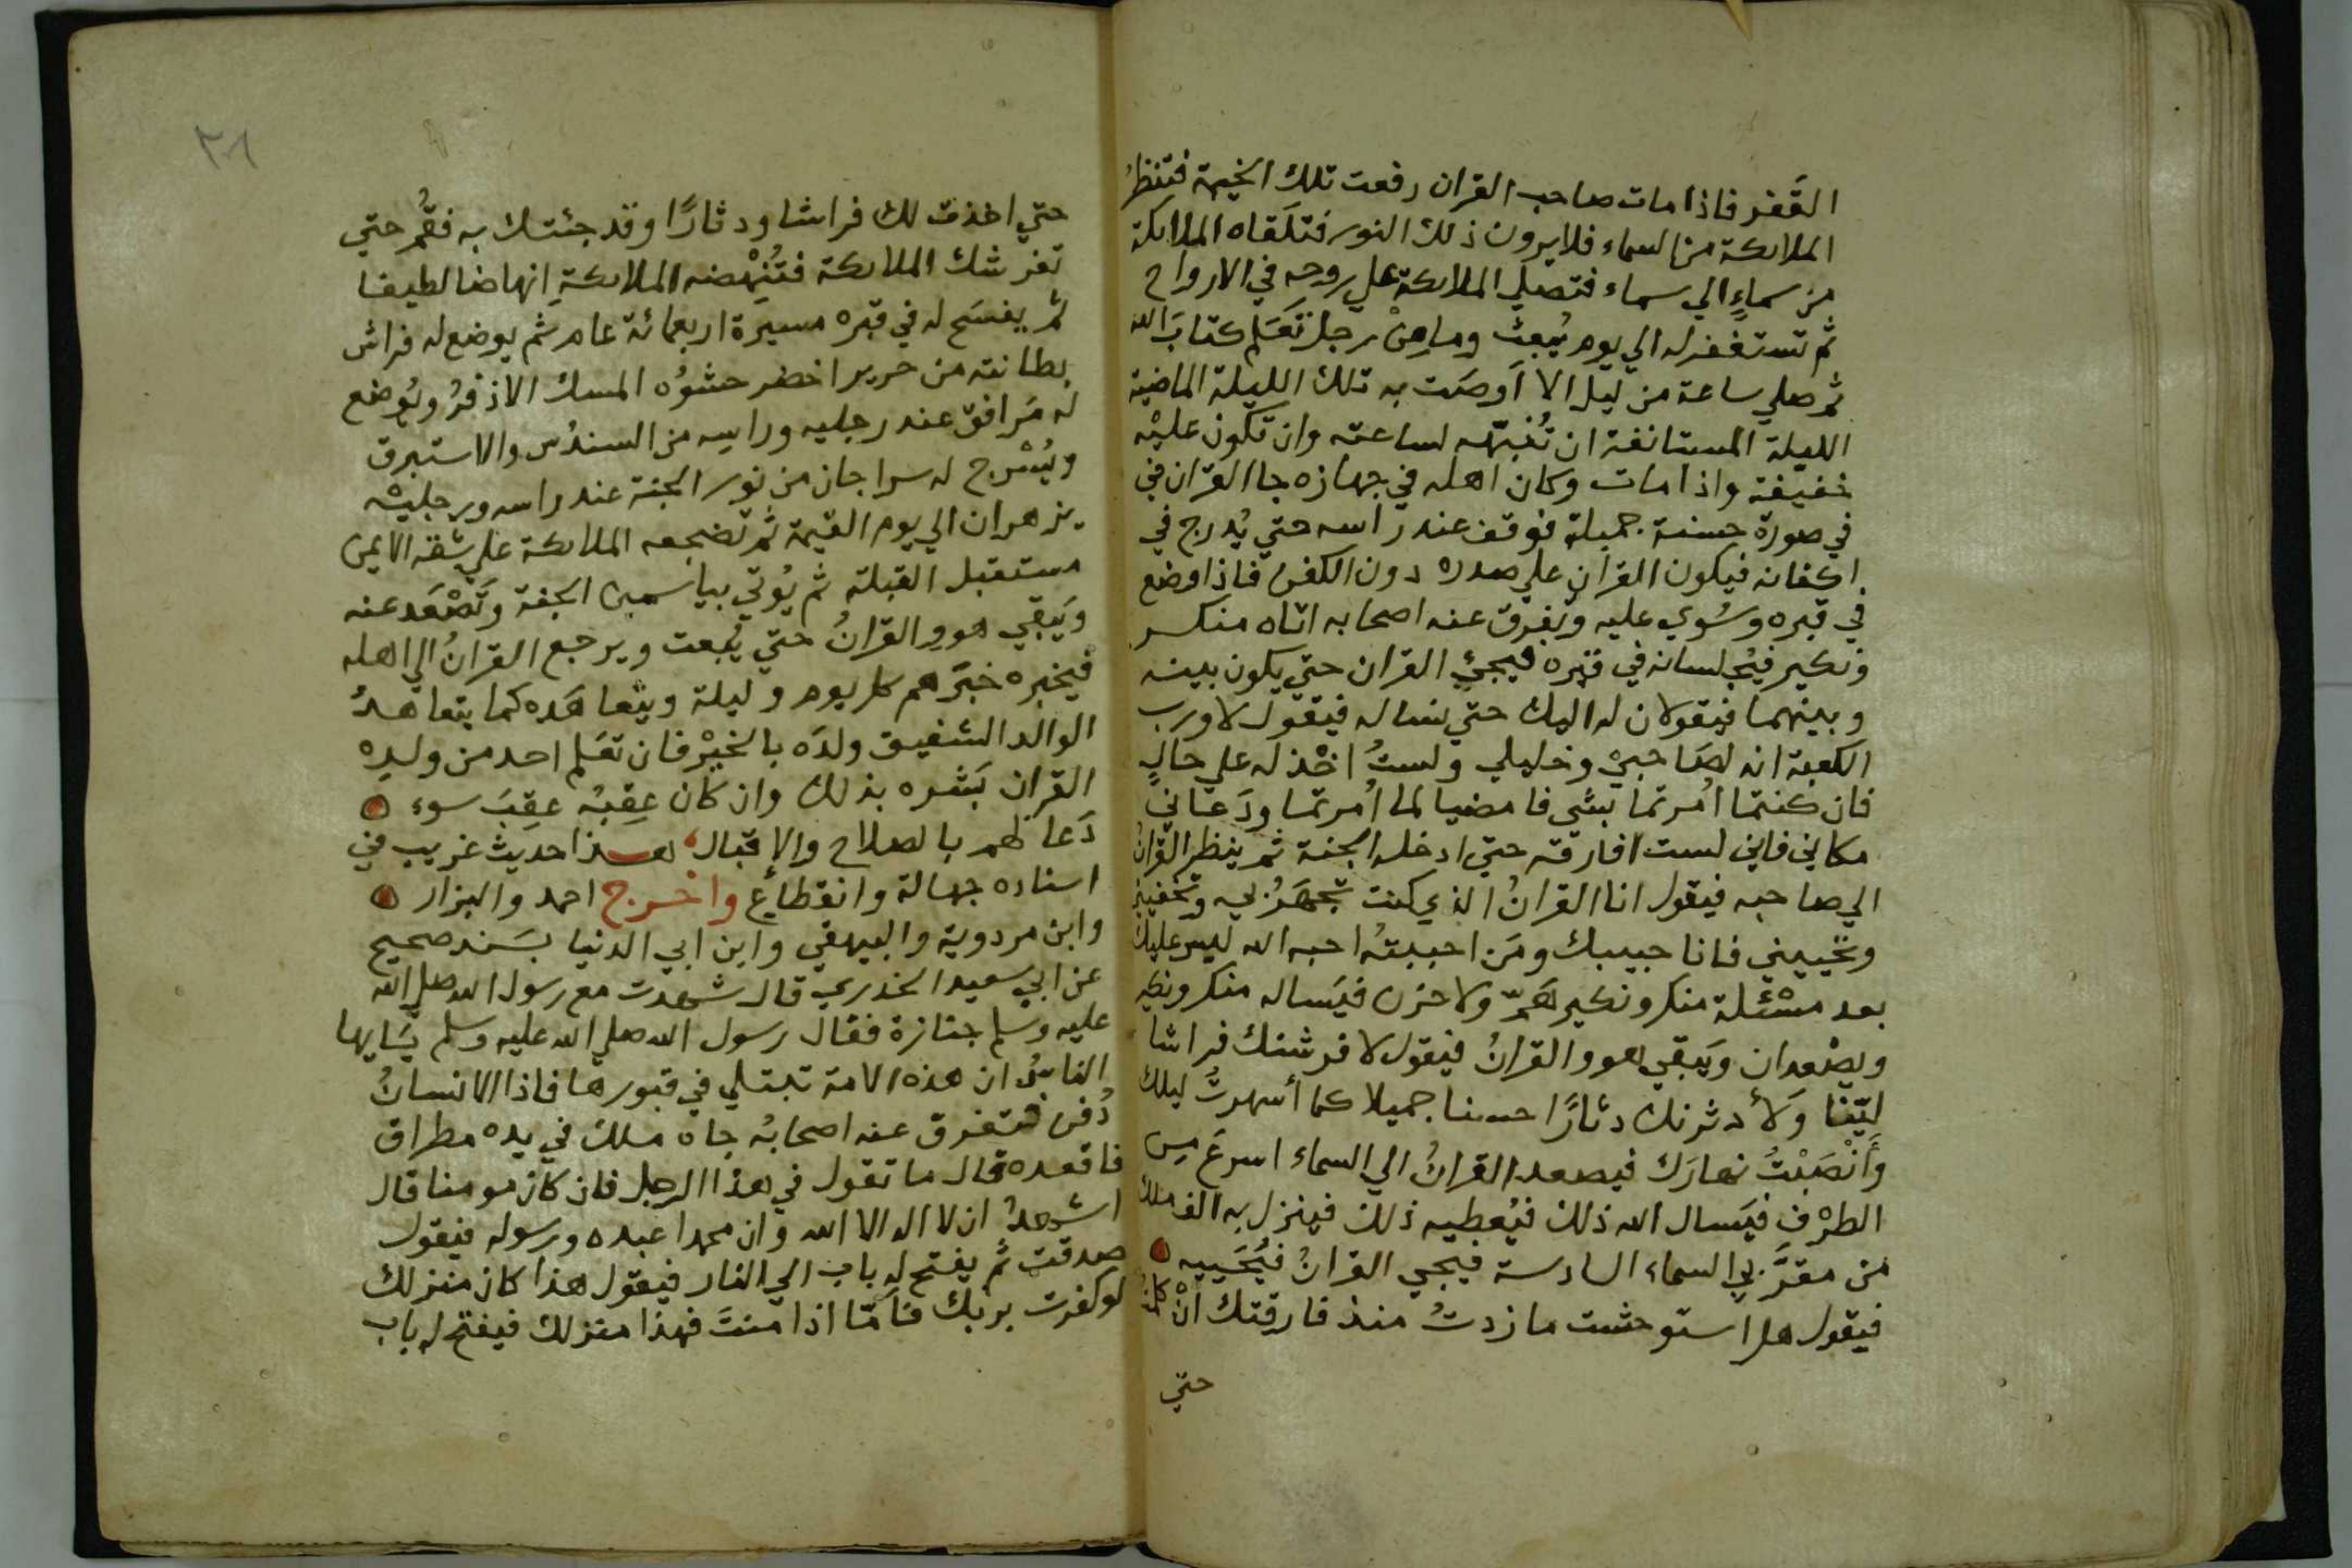 القَفر فاذا مات صاحب القران رفعت تلك الخيمة فتنظرُ
الملايكة من السماء فلا يرون ذلك النور فتلقاه الملايكة
من سماءٍ الي سماء فتصلي الملايكة علي روحه في الارواح
ثم تستغفر له الي يوم يُبعث وما من رجل تَعَلم كتابَ الله
ثم صلي ساعة من ليل الا اَوصَت به تلك الليلة الماضية
الليلة المستانفة ان تُنَبِّهه لساعته وان تكون عليْه
خفيفة واذا مات وكان اهله في جهازه جا القران في
في صورة حسنة جميلة فوقف عند راسه حتي يُدرج في
اكفانه فيكون القران علي صدره دون الكفن فاذا وضع
في قبره وسُوي عليه وتفرق عنه اصحابه اتاه منكر
ونكير فيُجلسانه في قبره فيجئِ القران حتي يكون بينه
وبينهما فيقولان له اليك حتي نساله فيقول لا ورب
الكعبة انه لصَاحبيْ وخليلي ولستُ اخْذله علي حالٍ
فان كنتما اُمرتما بشي فامضيا لما اُمرتما ودَعاني
مكاني فاني لست افارقه حتي ادخله الجنة ثم ينظر القرانُ
الي صاحبه فيقول انا القرانُ الذي كنت تجهَرُ بي وتخفيني
وتحييني فانا حبيبك ومَن احببتهُ احبه الله ليس عليك
بعد مسْئلة منكر ونكير هَمّ ولا حزن فيَساله منكر ونكير
ويصْعدان ويَبقي هو والقرانُ فيقول لافرشنك فراشا
ليّنا وَلأدثرنك دثارًا حسنا جميلا كما أسهرتُ ليلك
وَأَنْصَبْتُ نهارَك فيصعد القرانُ الي السماء اسرعَ من
الطرْفِ فيَسال الله ذلك فيُعطيه ذلك فينزل به الف ملك
من مقرَّبي السماء السادسة فيجي القرانُ فيُحَييه
فيقول هل استوحشت ما زدتُ منذ فارقتك انْ كلمتُ
حتي
٣٨
حتي اخذت لك فراشا ودثارًا وقد جئتك به فقُم حتي
تفرشك الملايكة فتُنْهضه الملايكةِ انهاضا لطيفا
ثم يفسَح له في قبره مسيرة اربعمائة عام ثم يوضع له فراش
بطانته من حرير اخضر حشوُه المسك الاذفرُ ويُوضع
له مَرافق عند رجليه وراسه من السندُس والاستبرق
ويُسْرج له سراجان من نور الجنة عند راسه ورجليْه
يزهران الي يوم القيمة ثم تضجعه الملايكة علي شقه الايمن
مستقبل القبلة ثم يُوتي بياسمين الجنة وتَصْعَد عنه
ويَبقي هو والقرانُ حتي يُبعت ويرجع القرانُ الي اهله
فيخبره خبَرهم كل يوم وليلة ويتعاهَده كما يتعاهدُ
الوالد الشفيق ولدَه بالخيْر فان تعَلم احد من ولدِه
القران بَشره بذلك وان كان عِقبُه عقِبَ سوء
دَعا لهم بالصلاح والإقبال هذا حديث غريب في
اسناده جهالة وانقطاع واخرج احمد والبزار
وابن مردوية والبيهقي وابن ابي الدنيا بسَند صحيح
عن ابي سعيد الخدري قال شهدت مع رسول الله صلي الله
عليه وسلم جنازة فقال رسول الله صلي الله عليه وسلم يَايها
الناسُ ان هذه الامة تبتلي في قبورها فاذا الانسانُ
دُفن فتفرق عنه اصحابُه جاه ملك في يده مطراق
فاقعده قال ما تقول في هذا الرجل فان كان مومنا قال
اشهدُ ان لا اله الا الله وان محمدا عبده ورسوله فيقول
صدقت ثم يفتح له باب الي النار فيقول هذا كان منزلك
لو كفرت بربك فاَمّا اذا منتَ فهذا منزلك فيفتح له باب